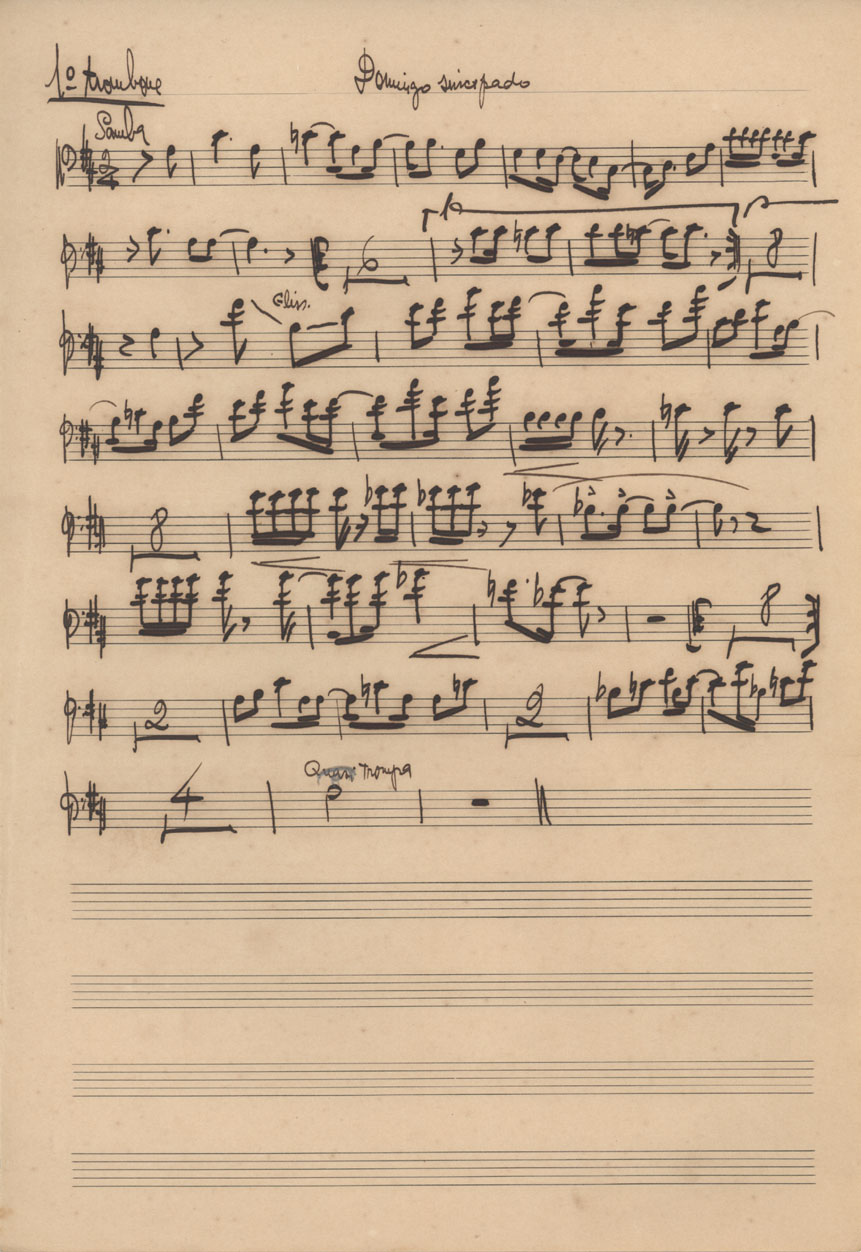 1º trombone
Domingo sincopado
Samba
2
4
6
8
Gliss.
8
8
2
2
Quasi Trompa
4